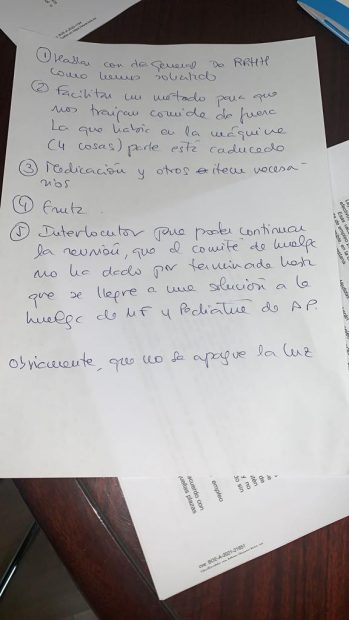 ① Hablar con dir General de RRHH
como hemos solicitado
② Facilitar un método para que
nos traigan comida de fuera
La que había en la máquina
(4 cosas) parte está caducado
③ Medicación y otros item necesa-
rios
④ Fruta.
⑤ Interlocutor para poder continuar
la reunión, que el comité de huelga
no ha dado por terminada hasta
que se llegue a una solución a la
huelga de MF y Pediatría de AP.
Obviamente, que no se apague la luz
acuerdo con
puestas plazas
empleo
y no
do sin
cve: BOE-A-2021-21651